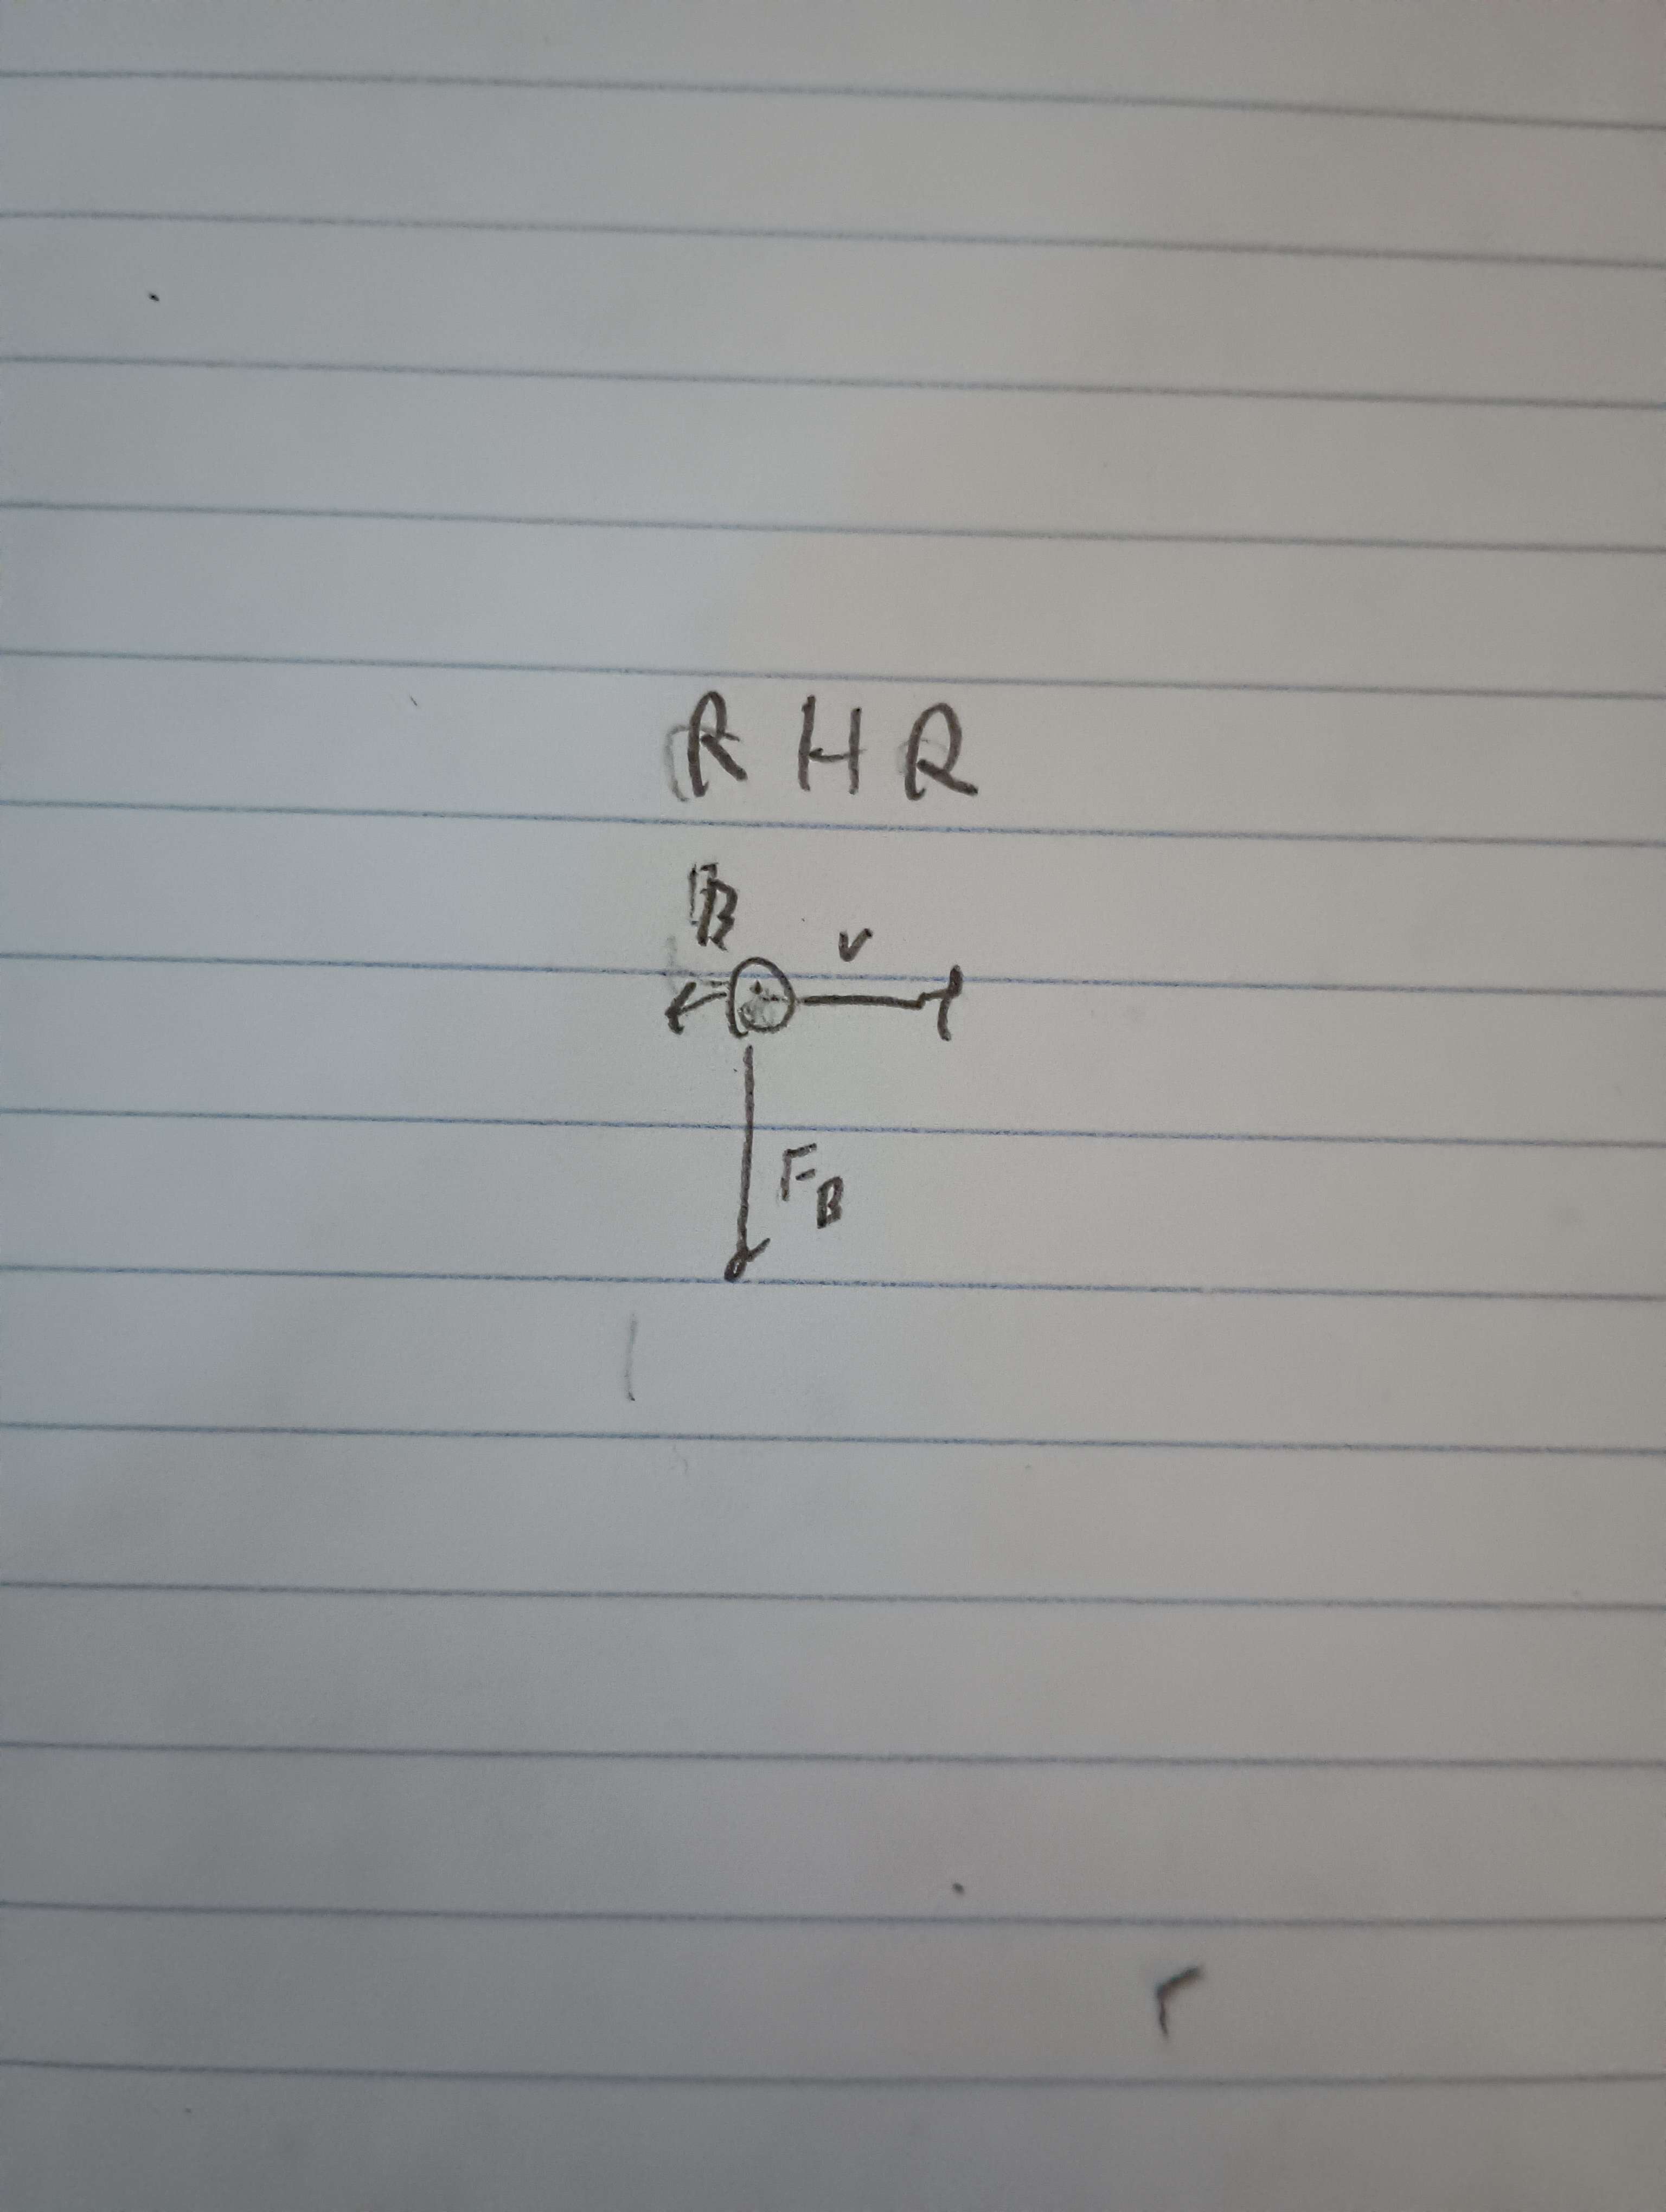 RHR
B
v
FB